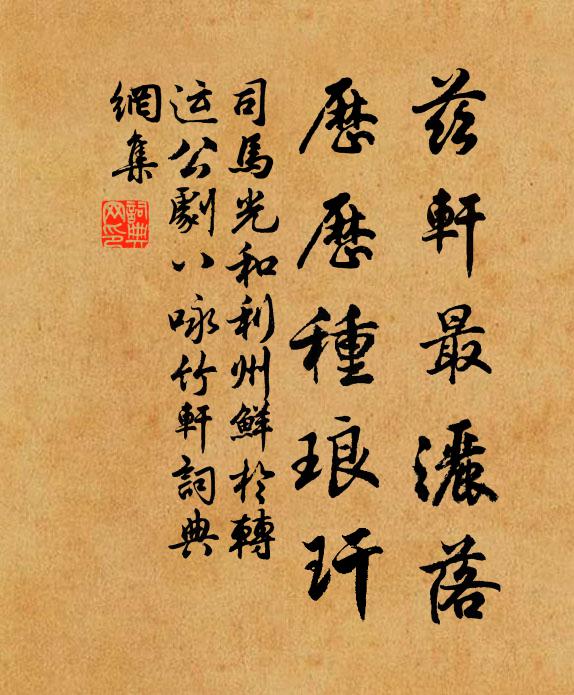 茲軒最灑落
歷歷種琅玕
司馬光和利州鮮於轉
运公劇八咏竹軒詞典
網集
詞典
网印